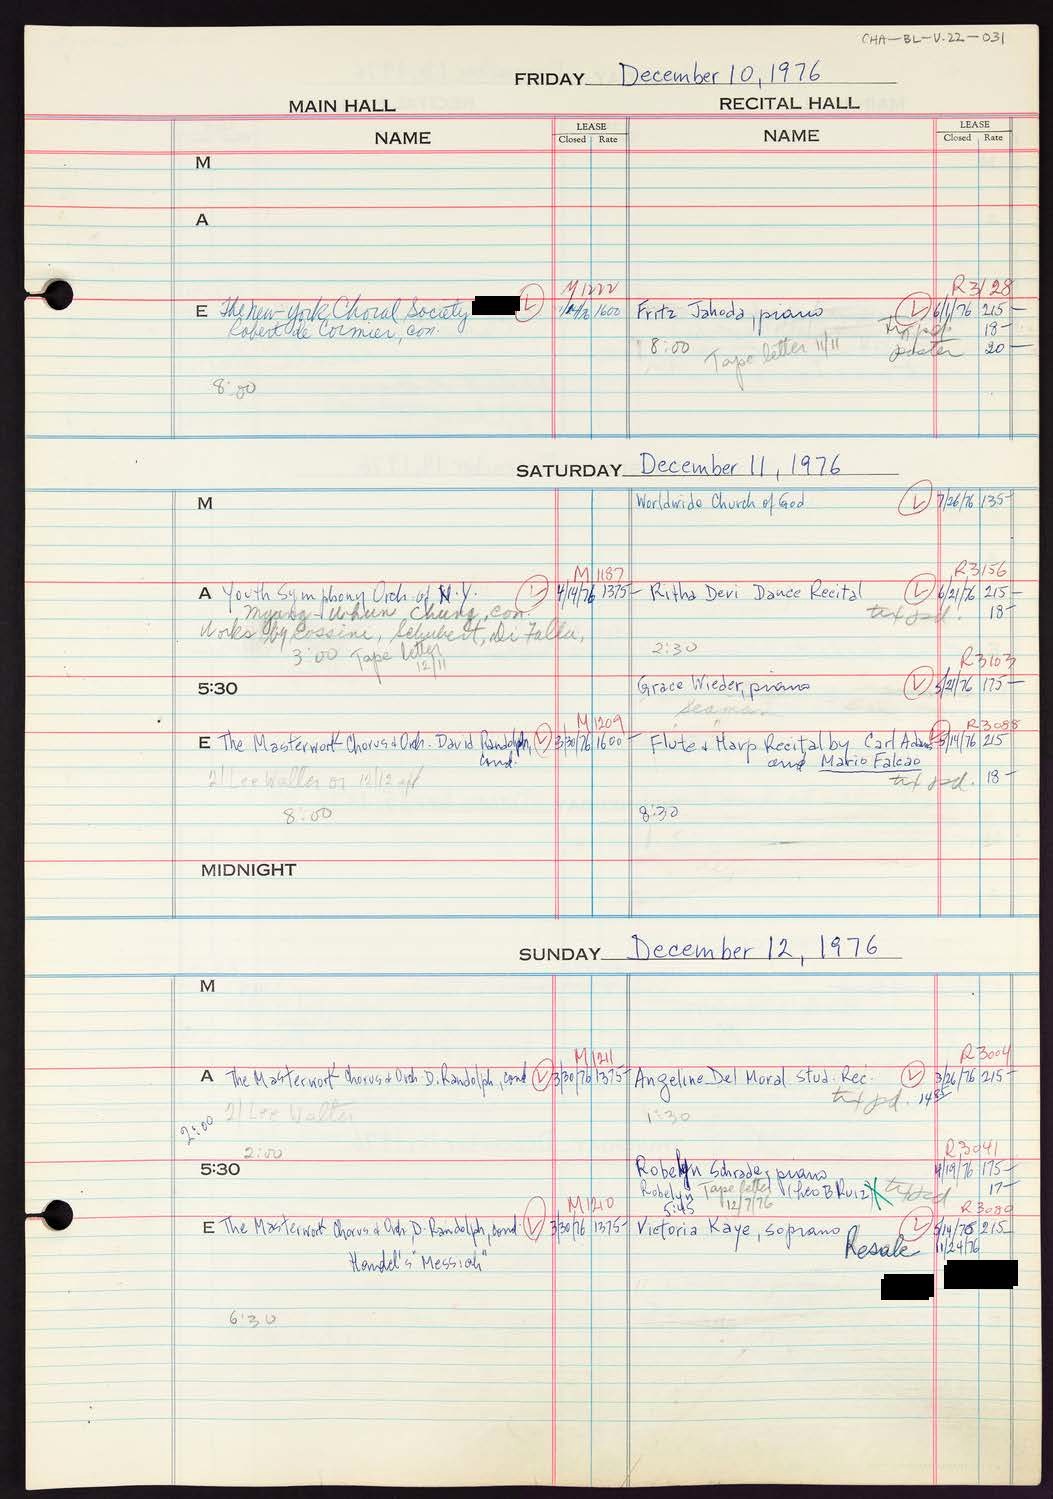 CHA-BL-V.22-031
FRIDAY December 10, 1976
MAIN HALL RECITAL HALL
NAME LEASE Closed Rate NAME LEASE Closed Rate
M
A
M1222 R3128
E The New York Choral Society 1600 Fritz Jahoda, piano 6/1/76 215-
Robert de Cormier, con. 18-
8:00 Tape letter 11/11 poster 20-
8:00
SATURDAY December 11, 1976
M Worldwide Church of God 7/26/76 135-
M1187 R3156
A Youth Symphony Orch. of N.Y. 4/14/76 1375- Ritha Devi Dance Recital 6/21/76 215-
Myung-Whun Chung, con. txt pd. 18-
Works by Rossini, Schubert, Di Falla,
3:00 Tape letter 2:30
12/11
R3103
5:30 Grace Wieder, piano 5/21/76 175-
Seaman
M1209 R3088
E The Masterwork Chorus & Orch. David Randolph, cond. 3/30/76 1600- Flute & Harp Recital by Carl Adams 5/14/76 215
and Mario Falcao
2) Lee Walter or 12/12 txt pd. 18-
8:00 8:30
MIDNIGHT
SUNDAY December 12, 1976
M
M1211 R3004
A The Masterwork Chorus & Orch. D. Randolph, cond 3/30/76 1375- Angeline Del Moral Stud. Rec. 3/26/76 215-
txt pd. 14.85
2:00 2) Lee Walter 1:30
2:00
R3041
5:30 Robelyn Schrade, piano 4/19/76 175-
Robelyn Tape letter (Theo B Ruiz) txt pd 17-
5:45 12/7/76
M1210 R3080
E The Masterwork Chorus & Orch. D. Randolph, cond 3/30/76 1375- Victoria Kaye, soprano 5/14/76 215-
Resale 11/24/76
Handel's "Messiah"
6:30